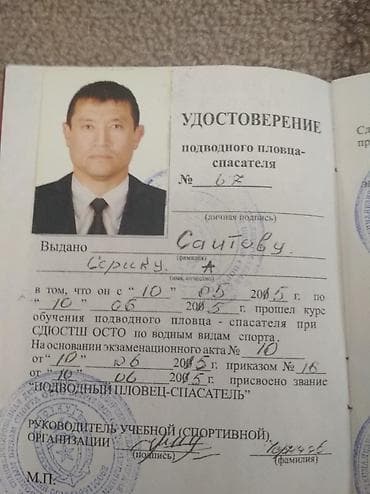 УДОСТОВЕРЕНИЕ
подводного пловца-
спасателя
№ 67
(личная подпись)
Выдано Саитову.
(фамилия)
Серику. А
(имя, отчество)
в том, что он с "10" 05 2015 г. по
"10" 06 2015 г. прошел курс
обучения подводного пловца - спасателя при
СДЮСТШ ОСТО по водным видам спорта.
На основании экзаменационного акта № 10
от "10" 06 2015 г. приказом № 16
от "10" 06 2015 г. присвоено звание
"ПОДВОДНЫЙ ПЛОВЕЦ-СПАСАТЕЛЬ"
РУКОВОДИТЕЛЬ УЧЕБНОЙ (СПОРТИВНОЙ)
ОРГАНИЗАЦИИ
(подпись) (фамилия)
М.П.